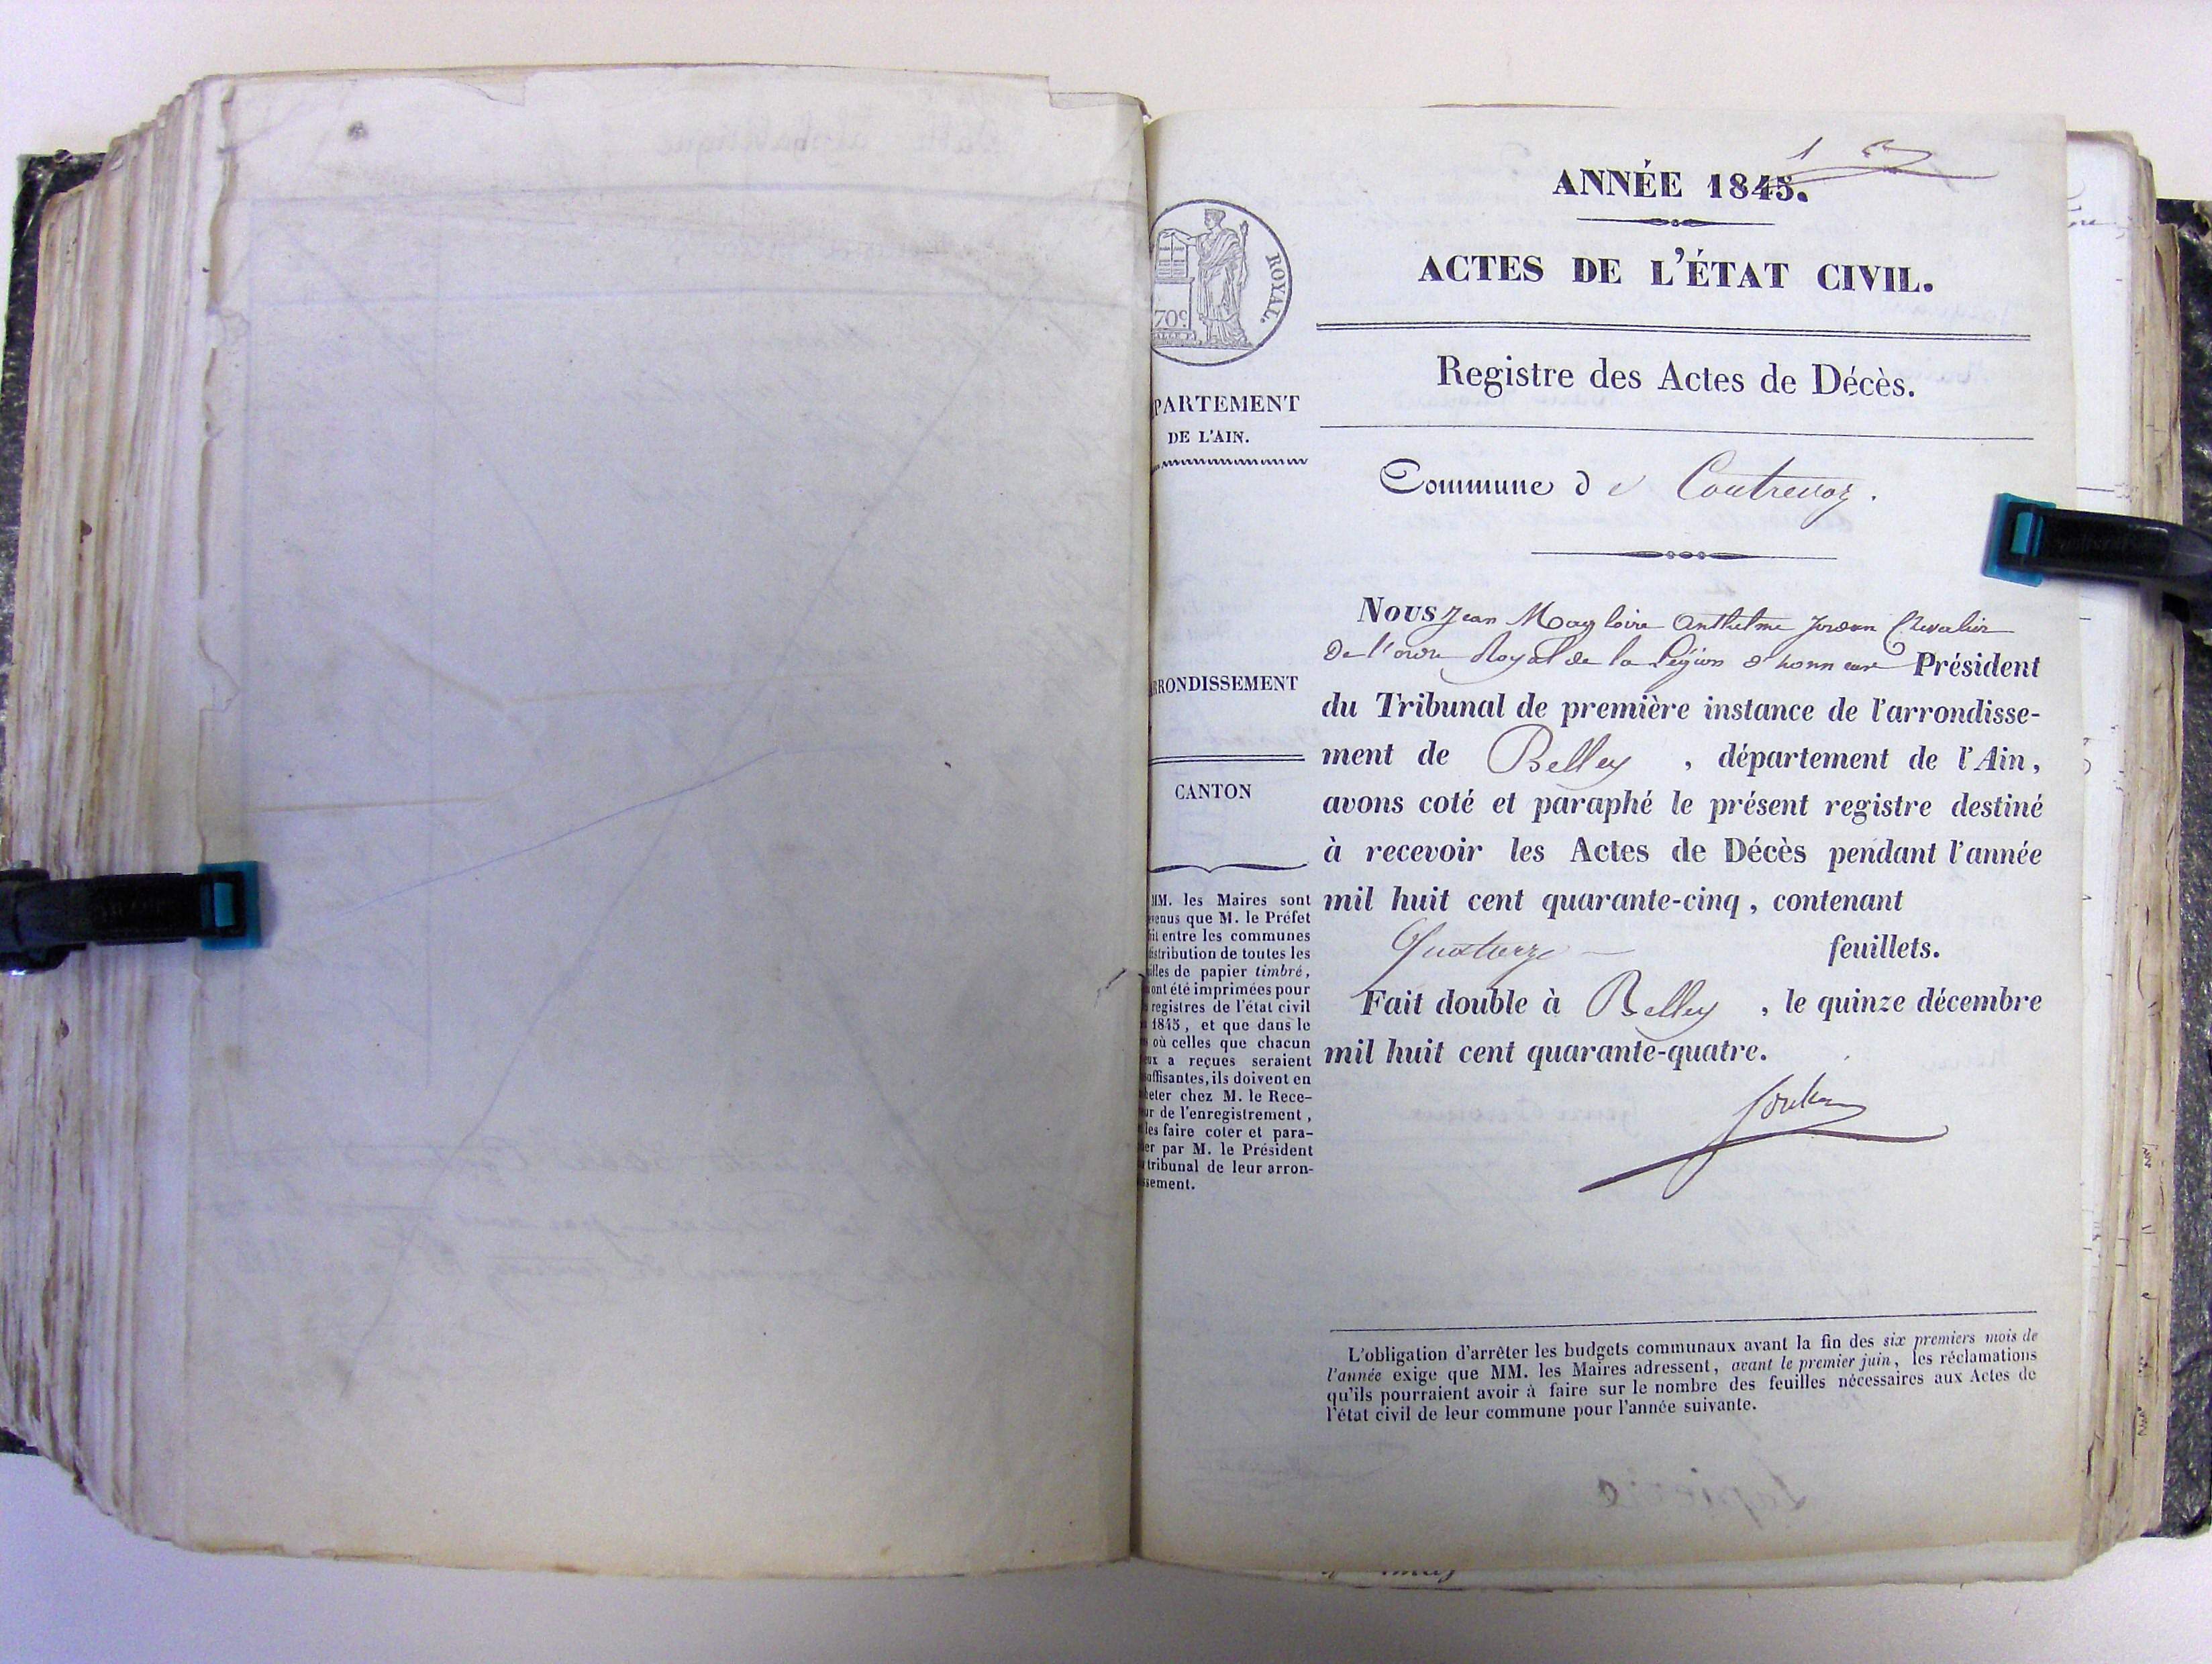 1
ANNÉE 1845.
ACTES DE L'ÉTAT CIVIL.
Registre des Actes de Décès.
Commune de Contrevoz.
Nous Jean Magloire Anthelme Jordan Chevalier
De l'ordre Royal de la Légion d'honneur Président
du Tribunal de première instance de l'arrondisse-
ment de Belley, département de l'Ain,
avons coté et paraphé le présent registre destiné
à recevoir les Actes de Décès pendant l'année
mil huit cent quarante-cinq, contenant
Quatorze feuillets.
Fait double à Belley, le quinze décembre
mil huit cent quarante-quatre.
ROYAL.
70c
PARTEMENT
DE L'AIN.
RRONDISSEMENT
CANTON
MM. les Maires sont
venus que M. le Préfet
it entre les communes
istribution de toutes les
illes de papier timbré,
ont été imprimées pour
registres de l'état civil
1845, et que dans le
où celles que chacun
eux a reçues seraient
suffisantes, ils doivent en
heter chez M. le Rece-
ur de l'enregistrement,
les faire coter et para-
er par M. le Président
tribunal de leur arron-
ssement.
L'obligation d'arrêter les budgets communaux avant la fin des six premiers mois de
l'année exige que MM. les Maires adressent, avant le premier juin, les réclamations
qu'ils pourraient avoir à faire sur le nombre des feuilles nécessaires aux Actes de
l'état civil de leur commune pour l'année suivante.